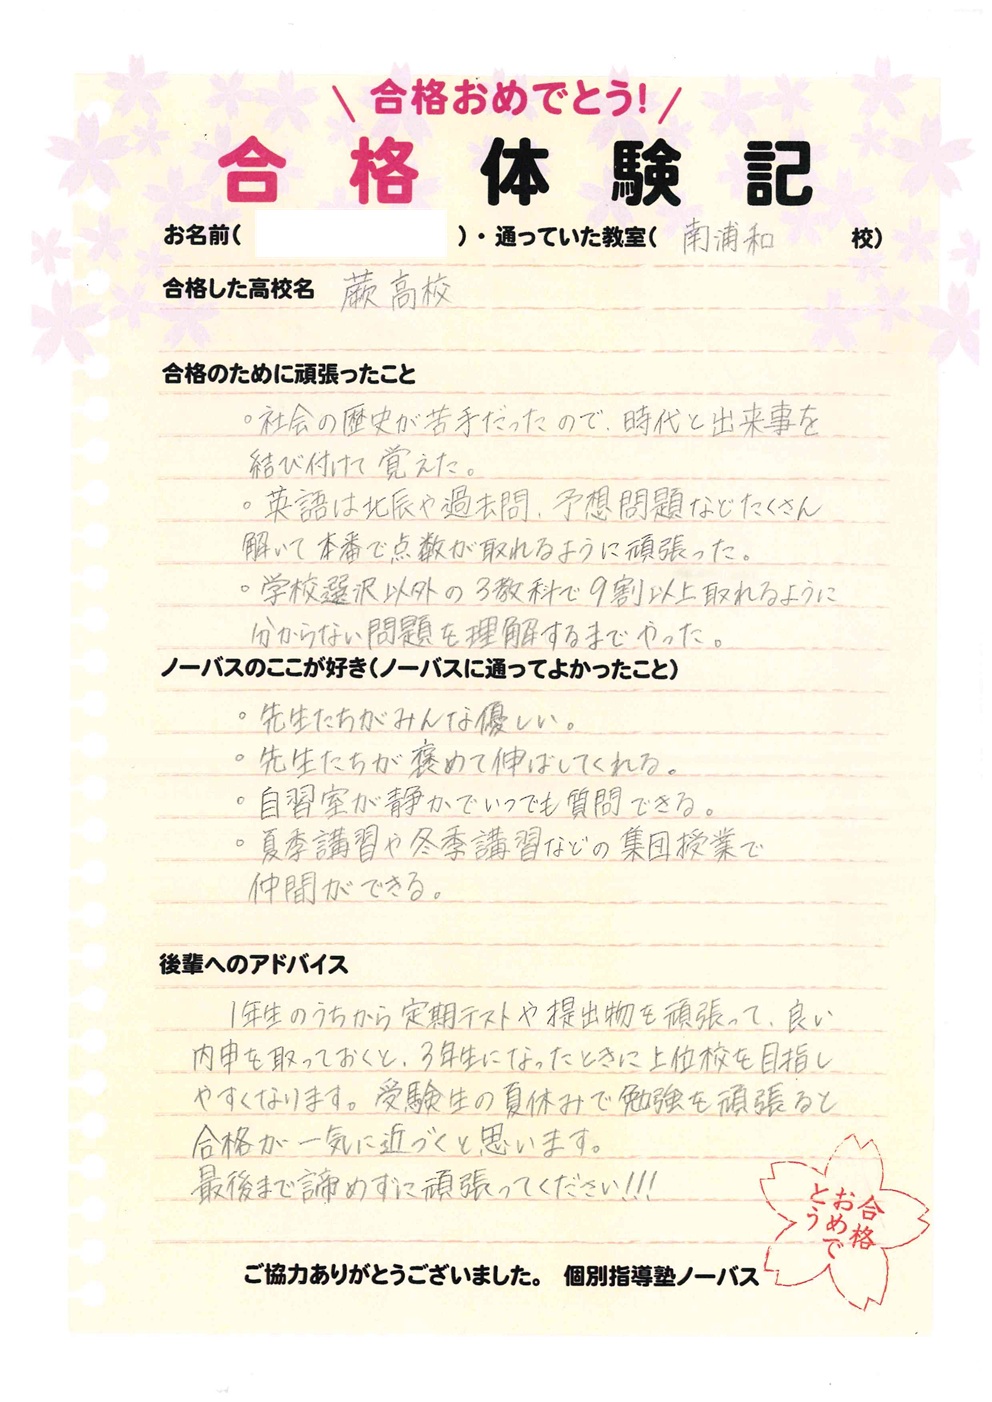 合格おめでとう!
合格体験記
お名前( )・通っていた教室( 南浦和 校)
合格した高校名 蕨高校
合格のために頑張ったこと
・社会の歴史が苦手だったので、時代と出来事を
結び付けて覚えた。
・英語は北辰や過去問、予想問題などたくさん
解いて本番で点数が取れるように頑張った。
・学校選択以外の3教科で9割以上取れるように
分からない問題を理解するまでやった。
ノーバスのここが好き(ノーバスに通ってよかったこと)
・先生たちがみんな優しい。
・先生たちが褒めて伸ばしてくれる。
・自習室が静かでいつでも質問できる。
・夏季講習や冬季講習などの集団授業で
仲間ができる。
後輩へのアドバイス
1年生のうちから定期テストや提出物を頑張って、良い
内申を取っておくと、3年生になったときに上位校を目指し
やすくなります。受験生の夏休みで勉強を頑張ると
合格が一気に近づくと思います。
最後まで諦めずに頑張ってください!!!
合格
おめで
とう
ご協力ありがとうございました。 個別指導塾ノーバス